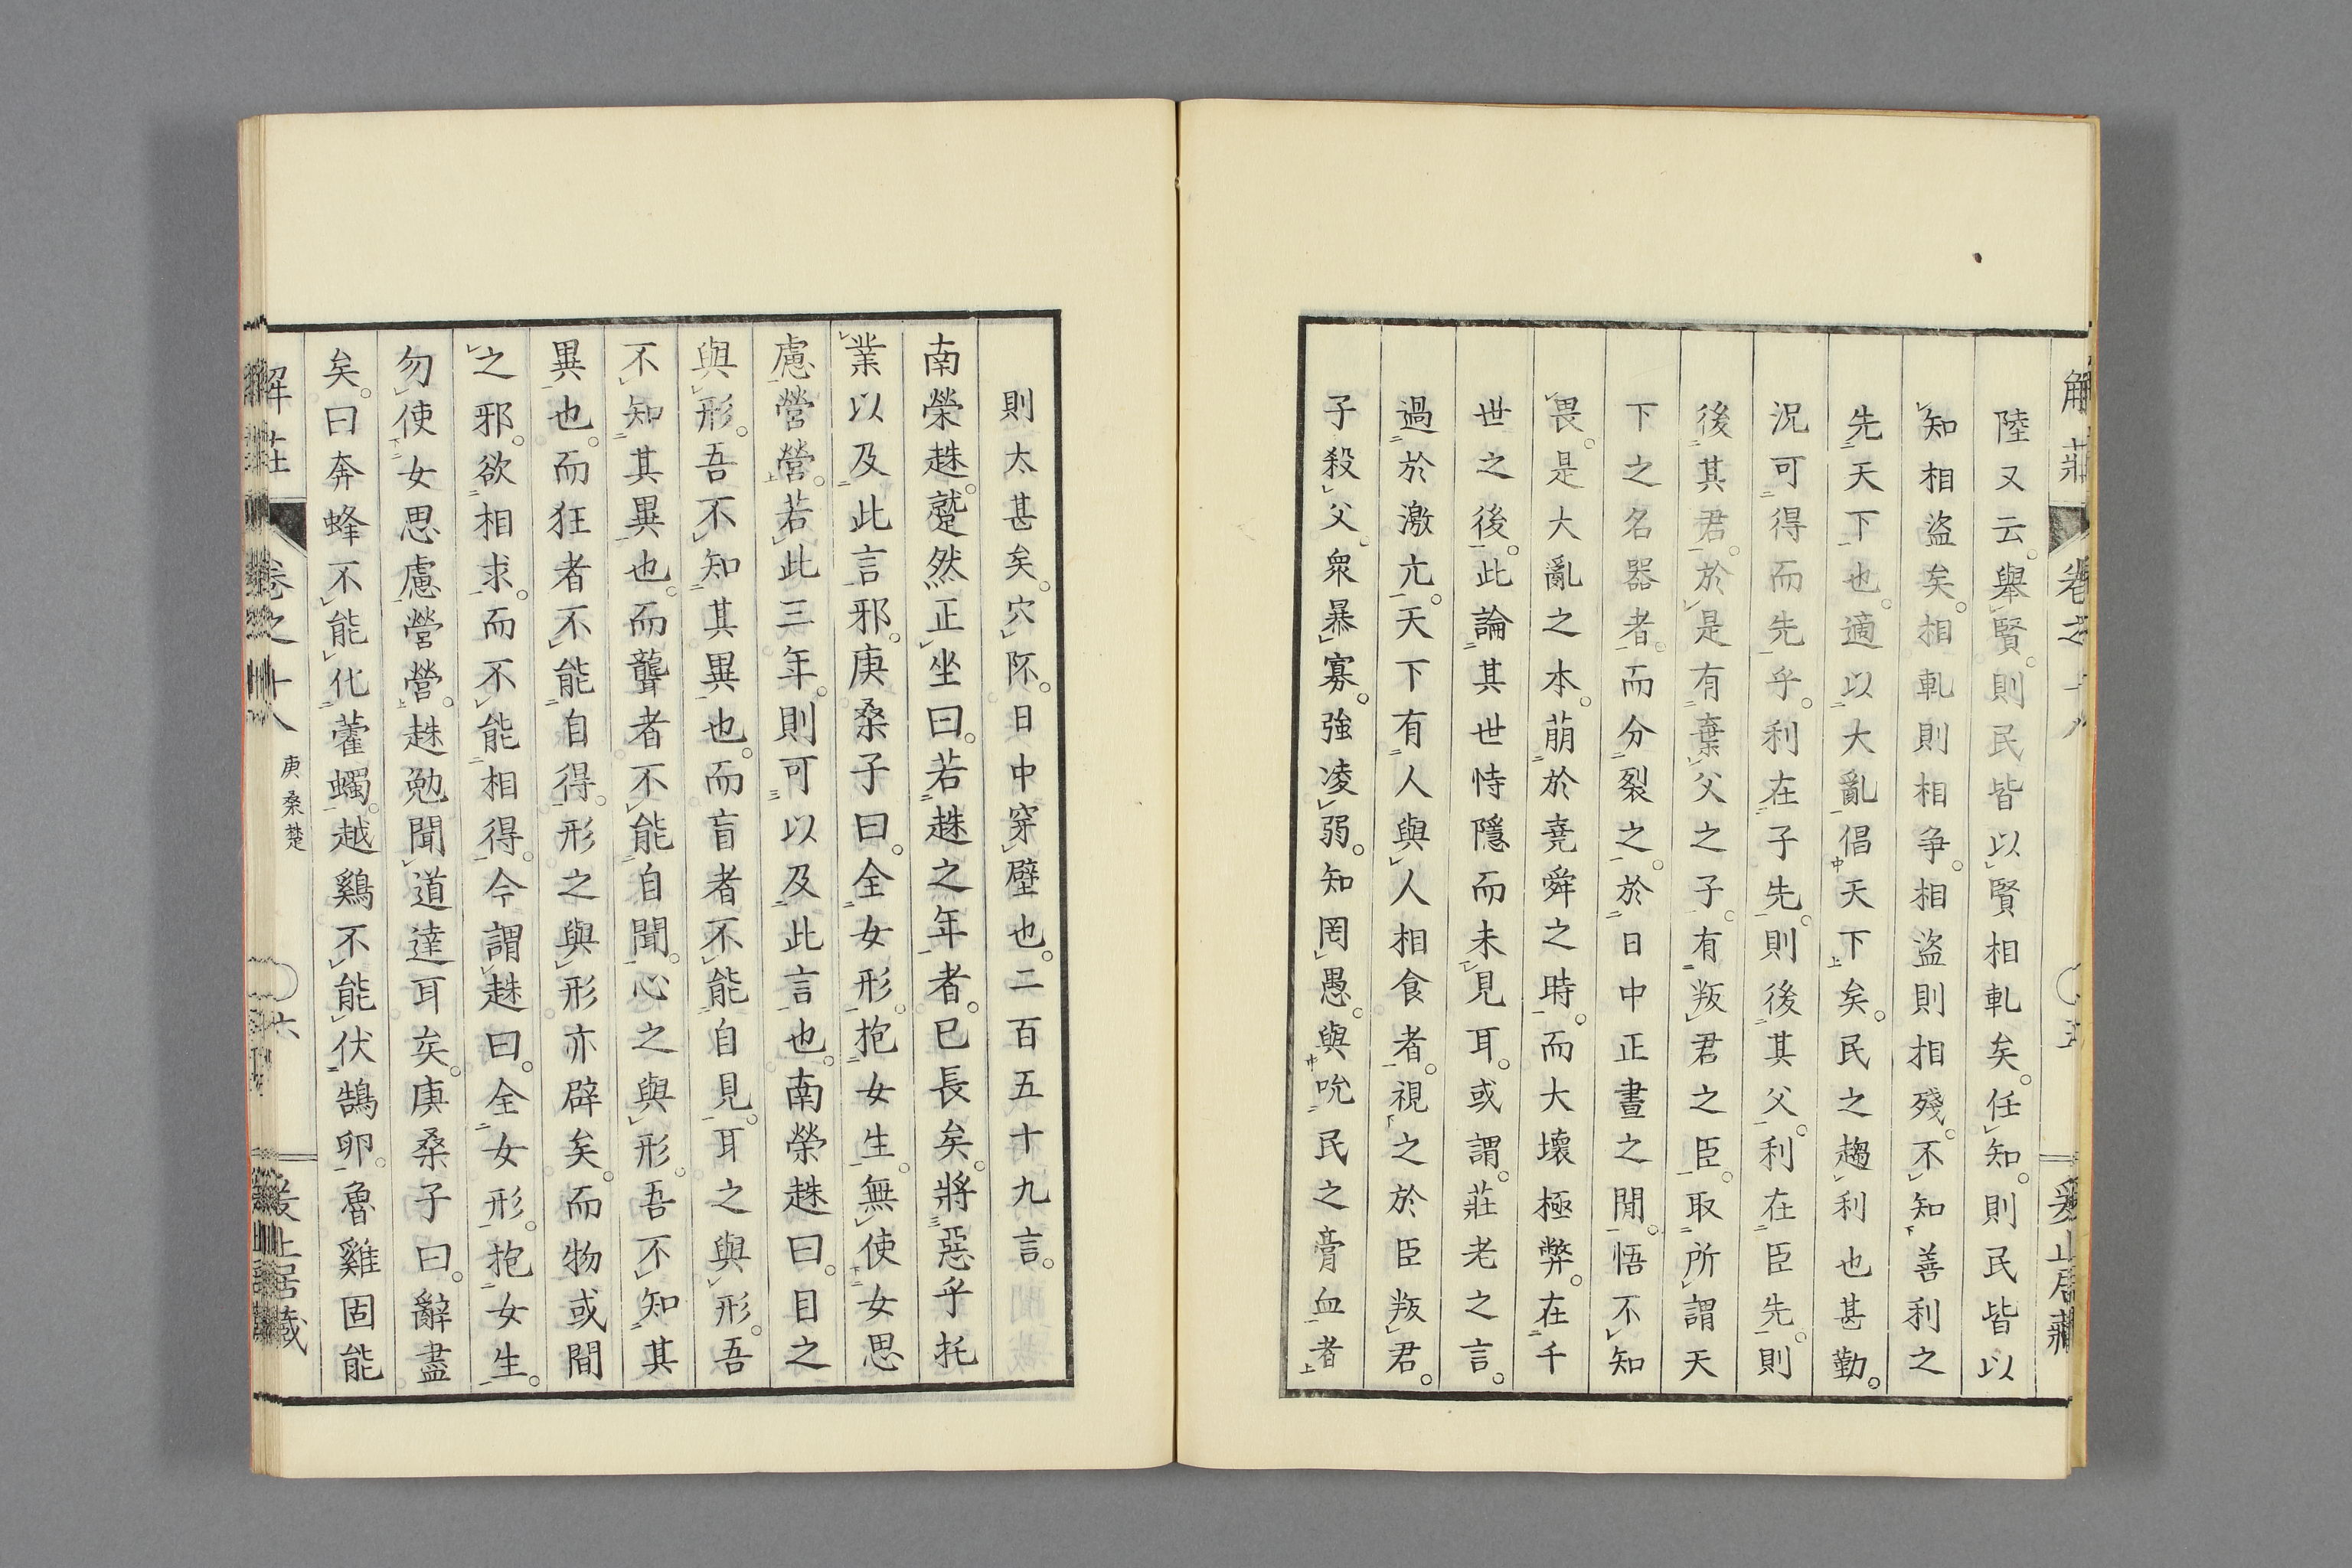 陸又云。舉賢。則民皆以賢相軋矣。任知。則民皆以
知相盜矣。相軋則相爭。相盜則相殘。不知善利之
先天下也。適以大亂倡天下矣。民之趨利也甚勤。
況可得而先乎。利在子先。則後其父。利在臣先。則
後其君。於是有棄父之子。有叛君之臣。取所謂天
下之名器者。而分裂之。於日中正晝之間。悟不知
畏。是大亂之本。萠於堯舜之時。而大壞極弊。在千
世之後。此論其世恃隱而未見耳。或謂。莊老之言。
過於激亢。天下有人與人相食者。視之於臣叛君。
子殺父。衆暴寡。強凌弱。知罔愚。與吮民之膏血者
則太甚矣。穴阫。日中穿壁也。二百五十九言。
南榮趎。蹵然正坐曰。若趎之年者。已長矣。將惡乎托
業以及此言邪。庚桑子曰。全女形。抱女生。無使女思
慮營營。若此三年。則可以及此言也。南榮趎曰。目之
與形。吾不知其異也。而盲者不能自見。耳之與形。吾
不知其異也。而聾者不能自聞。心之與形。吾不知其
異也。而狂者不能自得。形之與形亦辟矣。而物或間
之邪。欲相求。而不能相得。今謂趎曰。全女形。抱女生。
勿使女思慮營營。趎勉聞道達耳矣。庚桑子曰。辭盡
矣。曰奔蜂不能化藿蠋。越鷄不能伏鵠卵。魯雞固能
解莊 卷之十八 庚桑楚 六